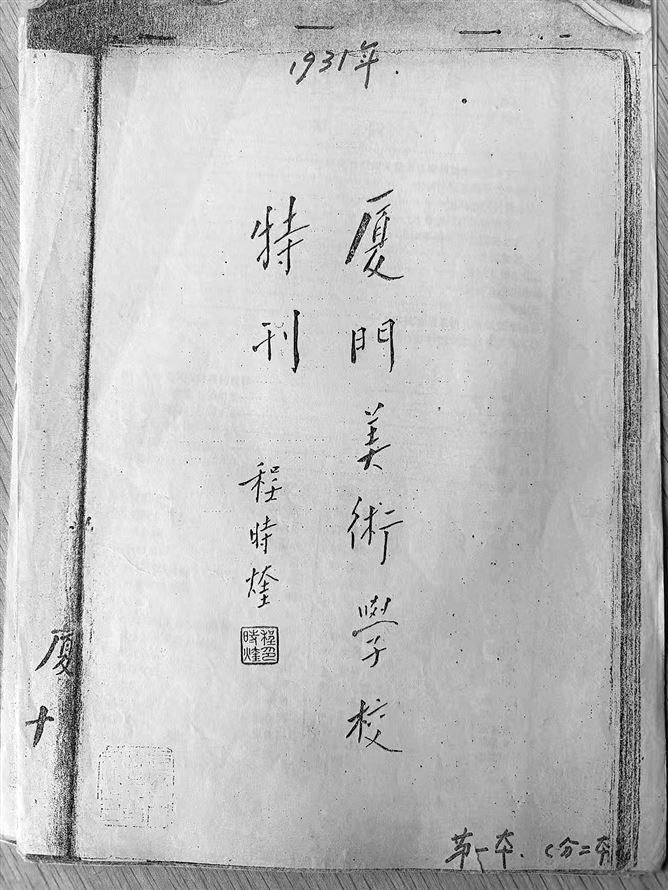 1931年.
厦門美術學校
特刊
程時煃
厦
十
第一本.(分二本